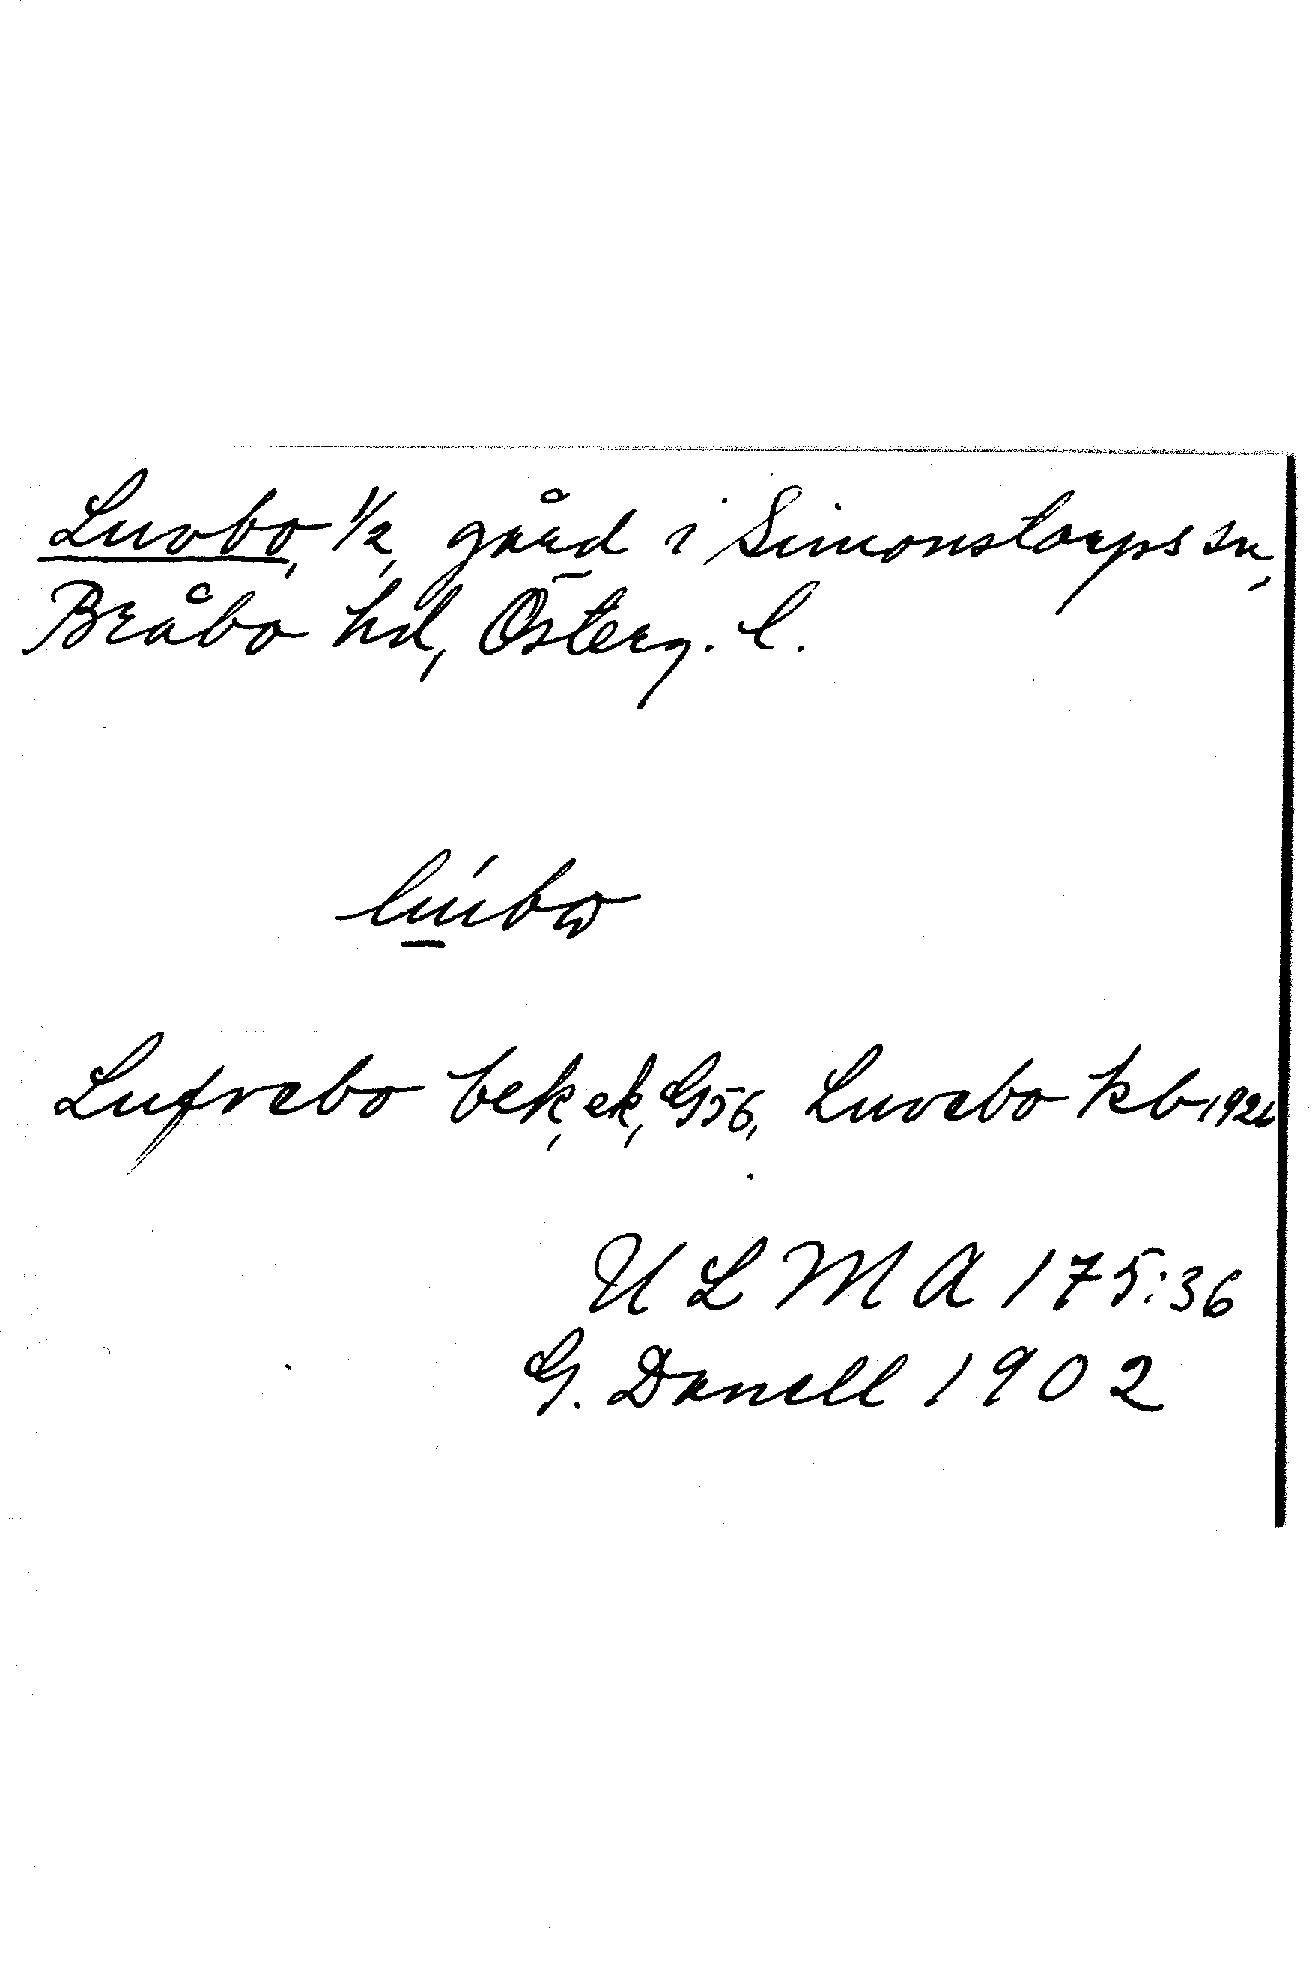 Luvbo, 1/2, gård i Simonstorps sn,
Bråbo hd, Österg. l.
Lufvebo bek, ek, G56, Luvebo kb 192
U L M A 175:36
G. Danell 1902